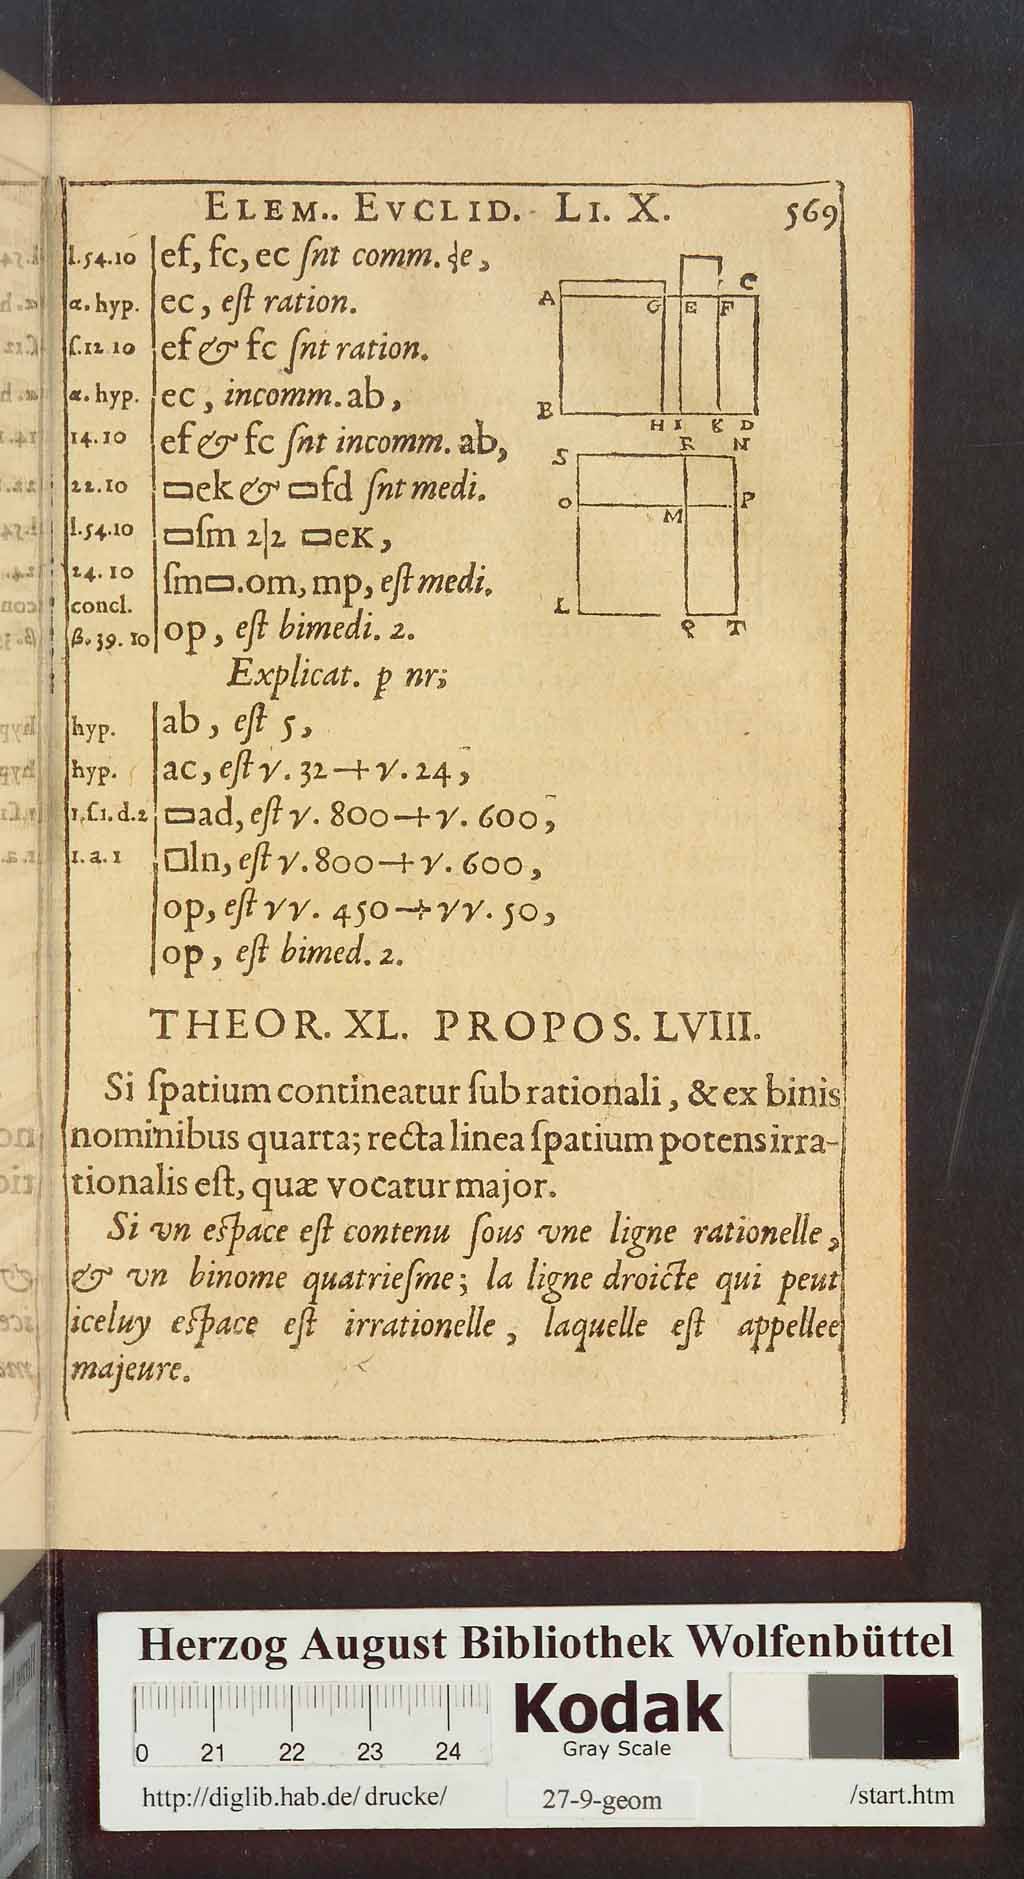 ELEM.. EVCLID. LI. X. 569
l.54.10 ef, fc, ec ſnt comm. ʒe,
α. hyp. ec, eſt ration.
ſ.12 10 ef & fc ſnt ration.
α. hyp. ec, incomm. ab,
14.10 ef & fc ſnt incomm. ab,
22.10 ▭ek & ▭fd ſnt medi.
l.54.10 ▭ſm 2|2 ▭eK,
24. 10 ſm▭.om, mp, eſt medi.
concl.
β. 39. 10 op, eſt bimedi. 2.
A G E F C
B H I K D
S R N
O M P
L Q T
Explicat. p nr;
hyp. ab, eſt 5,
hyp. ac, eſt γ. 32 + γ. 24,
1. ſ1. d.2 ▭ad, eſt γ. 800 + γ. 600,
1. a. 1 □ln, eſt γ. 800 + γ. 600,
op, eſt γγ. 450 + γγ. 50,
op, eſt bimed. 2.
THEOR. XL. PROPOS. LVIII.
Si ſpatium contineatur ſub rationali, & ex binis
nominibus quarta; recta linea ſpatium potens irra-
tionalis eſt, quæ vocatur major.
Si vn eſpace eſt contenu ſous vne ligne rationelle,
& vn binome quatrieſme; la ligne droicte qui peut
iceluy eſpace eſt irrationelle, laquelle eſt appellee
majeure.
Herzog August Bibliothek Wolfenbüttel
0 21 22 23 24
Kodak
Gray Scale
http://diglib.hab.de/drucke/ 27-9-geom /start.htm